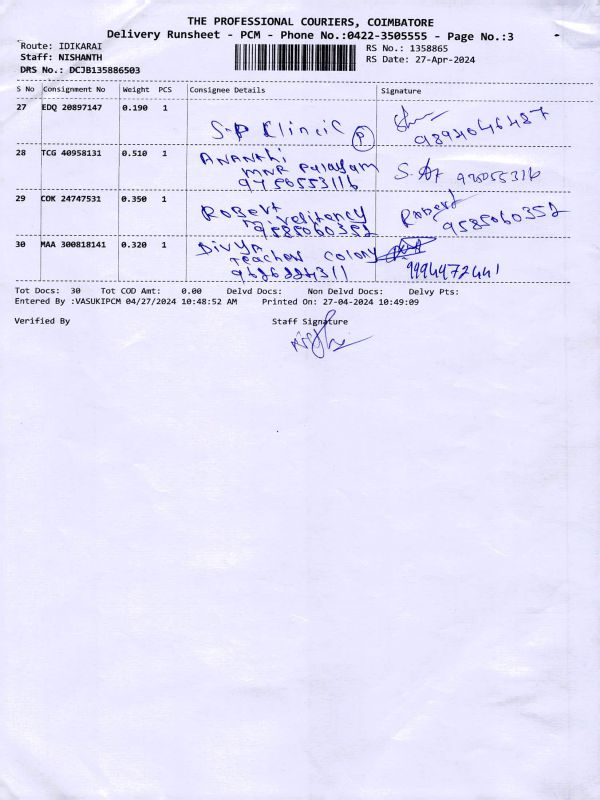 THE PROFESSIONAL COURIERS, COIMBATORE
Delivery Runsheet - PCM - Phone No.:0422-3505555 - Page No.:3
Route: IDIKARAI
RS No.: 1358865
Staff: NISHANTH
RS Date: 27-Apr-2024
DRS No.: DCJB135886503
S No Consignment No Weight PCS Consignee Details Signature
27 EDQ 20897147 0.190 1
S-P Clincic P
9894046487
28 TCG 40958131 0.510 1
ANANTHI
MNR Palayam
9750553116
S.
29 COK 24747531 0.350 1
ROBERT
9585060352
Robert
9585060352
30 MAA 300818141 0.320 1
DIVYA
Teacher Colony
9626224311
9994972441
Tot Docs: 30 Tot COD Amt: 0.00 Delvd Docs: Non Delvd Docs: Delvy Pts:
Entered By :VASUKIPCM 04/27/2024 10:48:52 AM Printed On: 27-04-2024 10:49:09
Verified By Staff Signature